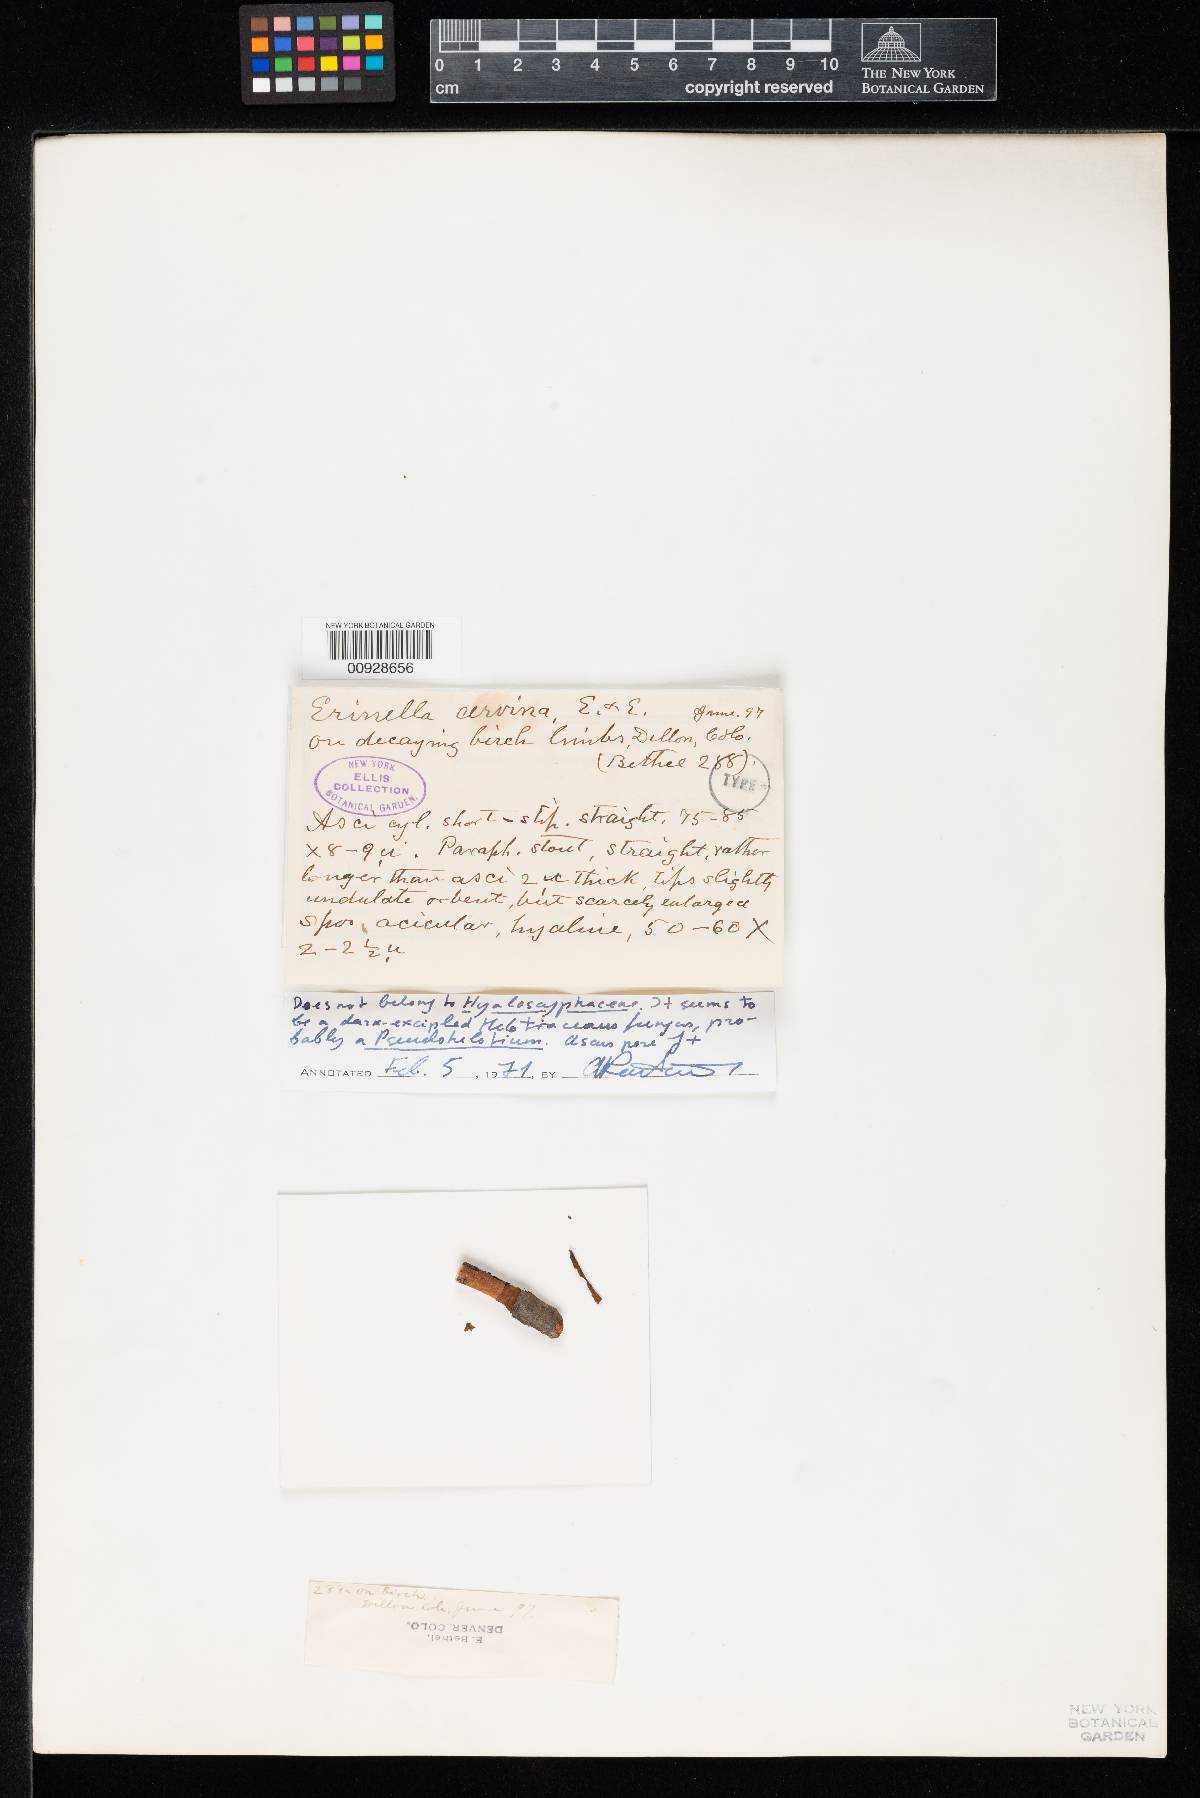 0 1 2 3 4 5 6 7 8 9 10
cm
copyright reserved
THE NEW YORK
BOTANICAL GARDEN
NEW YORK BOTANICAL GARDEN
00928656
Erinella cervina, E. & E. June. 97
on decaying birch limbs, Dillon, Colo.
(Bethel 288).
NEW YORK
ELLIS
COLLECTION
BOTANICAL GARDEN.
TYPE
Asci cyl. short-stip. straight, 75-85
X 8-9 µ. Paraph. stout, straight, rather
longer than asci 2 µ thick, tips slightly
undulate or bent, but scarcely enlarged
Spor, acicular, hyaline, 50-60 X
2-2½ µ
Does not belong to Hyaloscyphaceae. It seems to
be a dark-excipled Helotiaceous fungus, pro-
bably a Pseudohelotium. Ascus pore J+
ANNOTATED Feb. 5, 1971, BY
on Birch.
Dillon, Colo. June 97.
E. Bethel,
DENVER, COLO.
NEW YORK
BOTANICAL
GARDEN